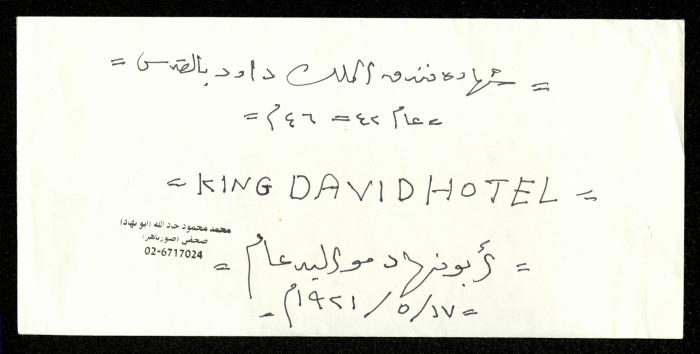 = شهادة فندق الملك داود بالقدس =
= عام ٤٢ = ٤٦م =
= KING DAVID HOTEL =
محمد محمود جاد الله (ابو نهاد)
صحفي (صورباهر)
02-6717024
= أبو نهاد مواليد عام =
= ١٧/٥/١٩٢١م =